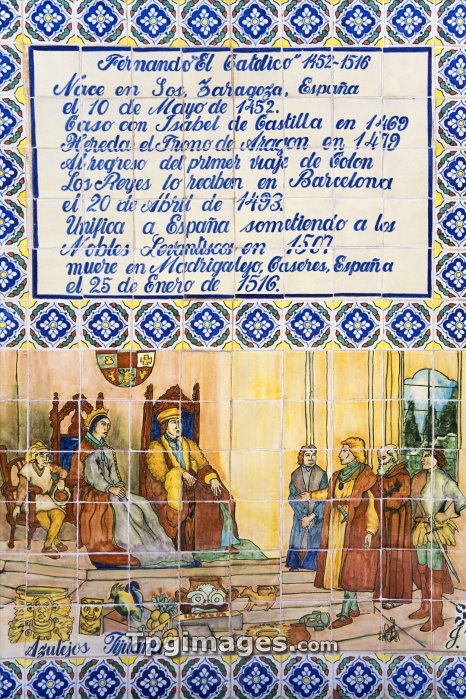 Fernando "El Catolico" 1452-1516
Nace en Sos, Zaragoza, España
el 10 de Mayo de 1452.
Caso con Isabel de Castilla en 1469
Hereda el Trono de Aragon en 1479
Al regreso del primer viaje de Colon
Los Reyes lo reciben en Barcelona
el 20 de Abril de 1493.
Unifica a España sometiendo a los
Nobles Levantiscos en 1507
muere en Madrigalejo, Caseres, España
el 25 de Enero de 1516.
Azulejos
Tpgimages.com
J.